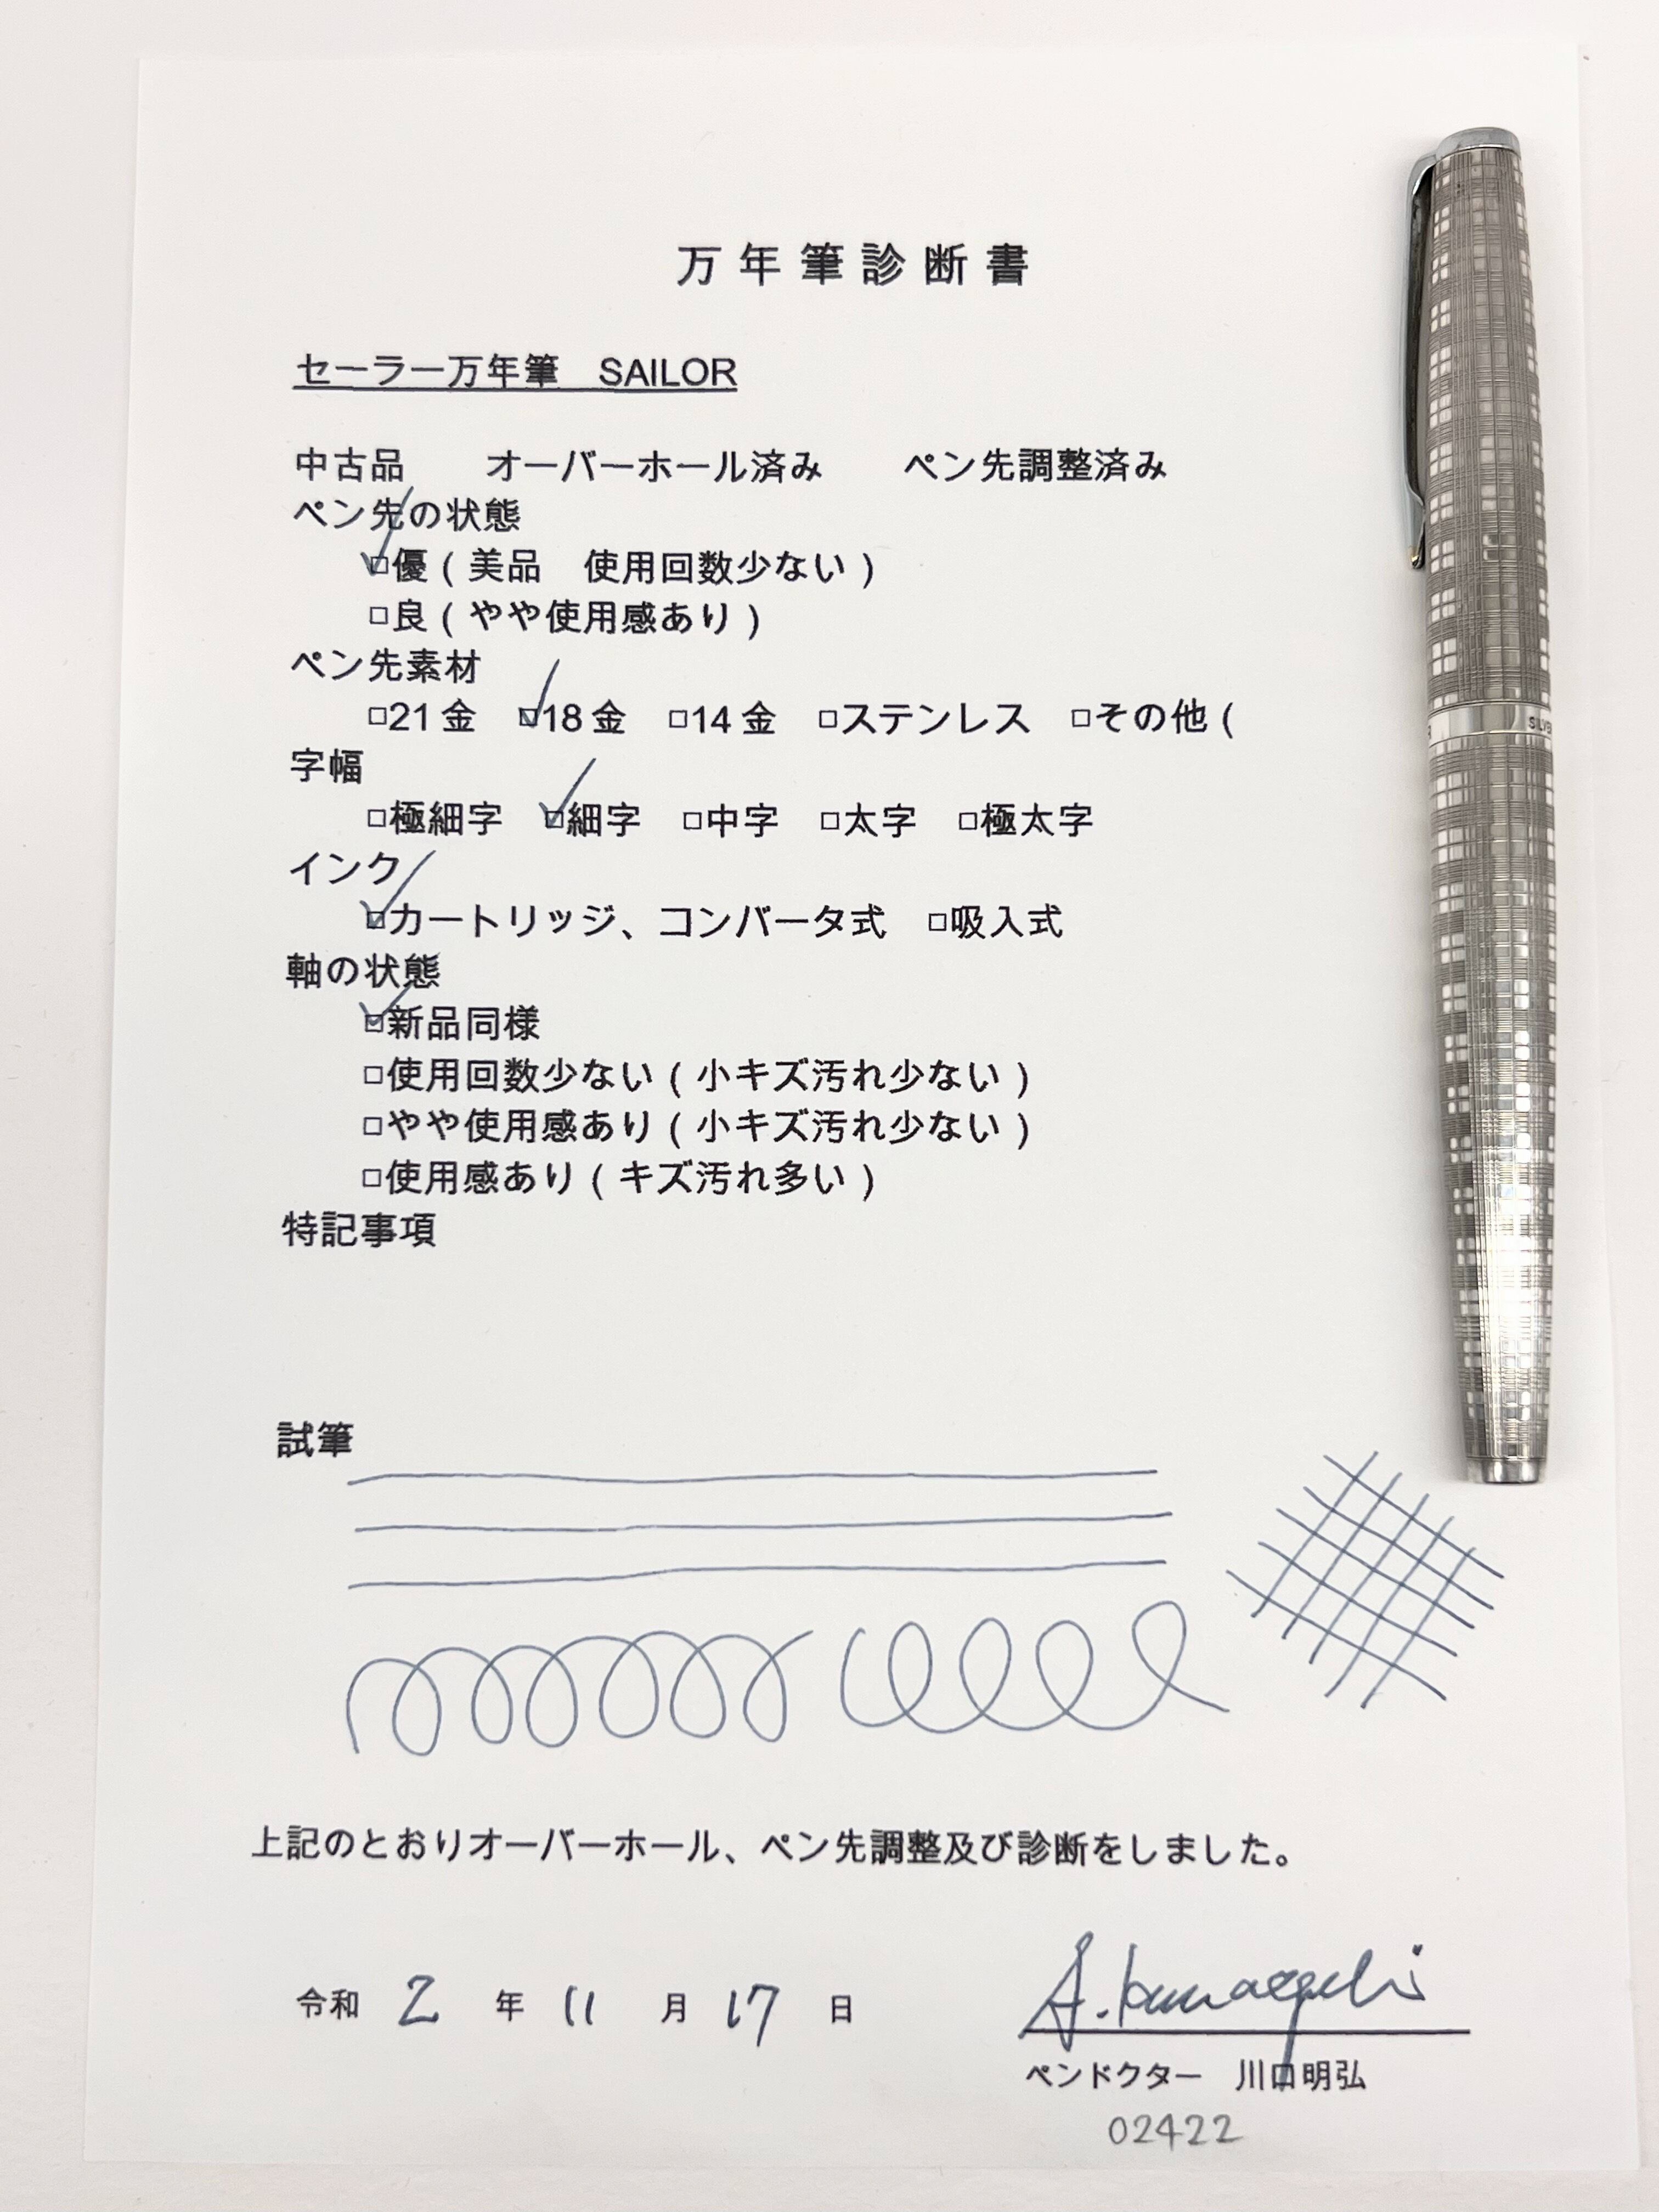 万年筆診断書
セーラー万年筆　SAILOR
中古品　　オーバーホール済み　　ペン先調整済み
ペン先の状態
☑優（美品　使用回数少ない）
□良（やや使用感あり）
ペン先素材
□21金　☑18金　□14金　□ステンレス　□その他（
字幅
□極細字　☑細字　□中字　□太字　□極太字
インク
☑カートリッジ、コンバータ式　□吸入式
軸の状態
☑新品同様
□使用回数少ない（小キズ汚れ少ない）
□やや使用感あり（小キズ汚れ少ない）
□使用感あり（キズ汚れ多い）
特記事項
試筆
上記のとおりオーバーホール、ペン先調整及び診断をしました。
令和 2 年 11 月 17 日
ペンドクター　川口明弘
02422